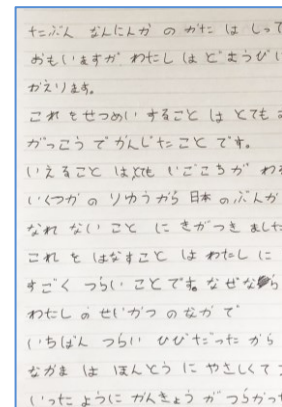 たぶん なんにんか の かた は しって
おもいますが わたし は どようび
かえります。
これ を せつめい すること は とても
がっこう で かんじたこと です。
いえること はとても いごこち が わ
いくつか の りゆうから 日本 の ぶんか
なれ ない こと に きがつき ました
これ を はなすこと は わたし に
すごく つらい こと です。なぜなら
わたし の せいかつ のなか で
いちばん つらい ひび だった から
なかま は ほんとう に やさしくて
いった ように かんきょう が つらかっ